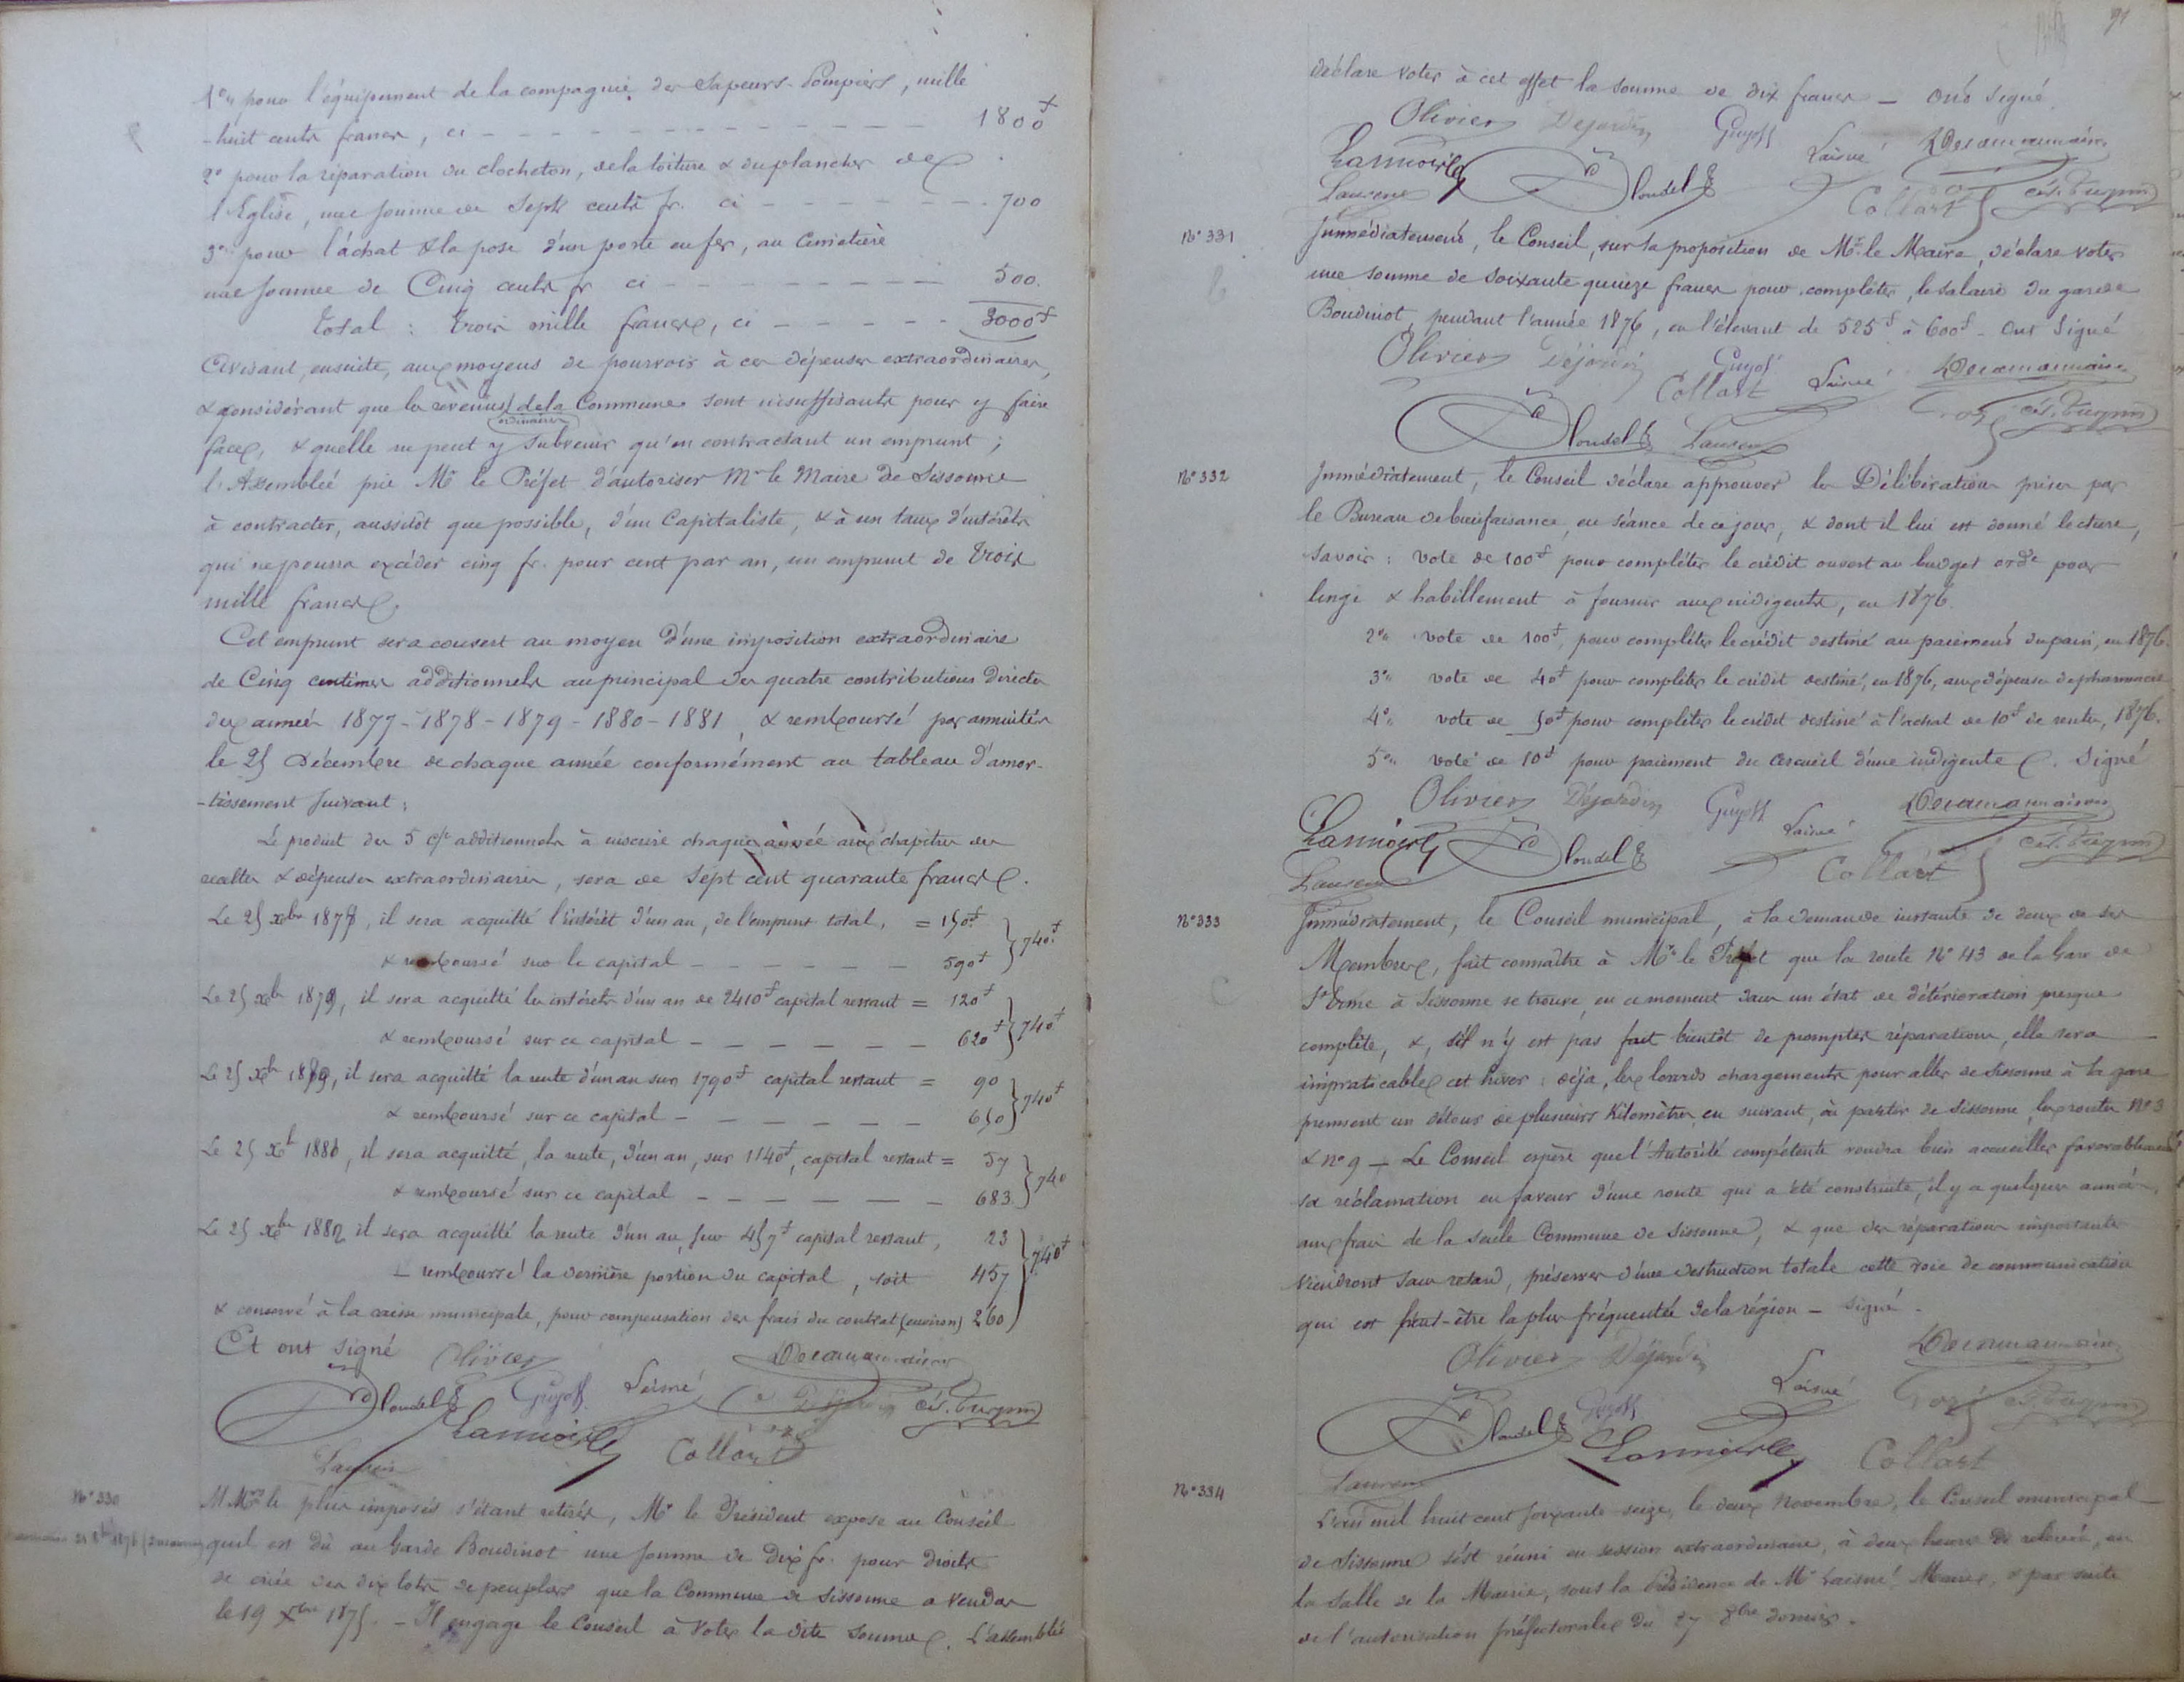 1° pour l'équipement de la compagnie des Sapeurs-Pompiers, mille
-huit cents francs, ci - - - - 1800f
2° pour la réparation du clocheton, de la toiture & du plancher de
l'Eglise, une somme de Sept cents fr. ci - - - - 700
3° pour l'achat & la pose d'un porte en fer, au Cimetière
une somme de Cinq cents fr ci - - - - 500.
Total : Trois mille francs, ci - - - - 3000f
Avisant, ensuite, aux moyens de pourvoir à ces dépenses extraordinaires,
& considérant que les revenus ordinaires de la Commune sont insuffisants pour y faire
face, & quelle ne peut y subvenir qu'en contractant un emprunt ;
l'Assemblée prie Mr le Préfet d'autoriser Mr le Maire de Sissonne
à contracter, aussitôt que possible, d'un Capitaliste, & à un taux d'intérêts
qui ne pourra excéder cinq fr. pour cent par an, un emprunt de Trois
mille francs.
Cet emprunt sera couvert au moyen d'une imposition extraordinaire
de Cinq centimes additionnels au principal des quatre contributions directes
des années 1877 - 1878 - 1879 - 1880 - 1881, & remboursé par annuités
le 25 Décembre de chaque année conformément au tableau d'amor-
-tissement suivant :
Le produit des 5 c/s additionnels à inscrire chaque année aux chapitres des
recettes & dépenses extraordinaires, sera de Sept cent quarante francs.
Le 25 xbre 1878, il sera acquitté l'intérêt d'un an, de l'emprunt total, = 150f
& remboursé sur le capital - - - - 590f } 740f
Le 25 xbre 1879, il sera acquitté les intérêts d'un an de 2410f capital restant = 120f
& remboursé sur ce capital - - - - 620f } 740f
Le 25 xbre 1880, il sera acquitté la rente d'un an sur 1790f capital restant = 90
& remboursé sur ce capital - - - - 650 } 740f
Le 25 xbre 1881, il sera acquitté, la rente, d'un an, sur 1140f, capital restant = 57
& remboursé sur ce capital - - - - 683 } 740
Le 25 xbre 1882 il sera acquitté la rente d'un an, sur 457f capital restant, 23
- remboursé la dernière portion du capital, soit 457 } 740f
& conservé à la caisse municipale, pour compensation des frais du contrat (environ) 260
Et ont signé Olivier
Blondel Guyot Laisné Dejardin Cés. Turpin
Lannois Collart
Laurent
N° 330 M.Mrs les plus imposés s'étant retirés, Mr le Président expose au Conseil
quil est dû au Garde Boudinot une somme de Dix fr. pour droits
de criée des dix lots de peupliers que la Commune de Sissonne a vendus
le 19 Xbre 1875. - Il engage le Conseil à voter la dite somme. L'assemblée
91
déclare voter à cet effet la somme de dix francs - Ont signé.
Olivier Dejardin Guyot Laisné
Lannois Blondel
Laurent Collart Cés. Turpin
N° 331 Immédiatement, le Conseil, sur la proposition de Mr le Maire, déclare voter
une somme de soixante quinze francs pour compléter, le salaire du garde
Boudinot, pendant l'année 1876, en l'élevant de 525f à 600f - Ont signé
Olivier Déjardin Guyot Collart Laisné
Blondel Laurent Cés. Turpin
N° 332 Immédiatement, le Conseil déclare approuver les Délibérations prises par
le Bureau de bienfaisance, en séance de ce jour, & dont il lui est donné lecture,
Savoir : Vote de 100f pour compléter le crédit ouvert au budget ordre pour
linge & habillement à fournir aux indigents, en 1876.
2° vote de 100f, pour compléter le crédit destiné au paiement du pain, en 1876.
3° vote de 40f pour compléter le crédit destiné, en 1876, aux dépenses de pharmacie
4° vote de 50f pour compléter le crédit destiné à l'achat de 10f de rentes, 1876.
5° vote de 10f pour paiement du cercueil d'une indigente. Signé
Olivier Déjardin Guyot Laisné
Lannois Blondel Cés. Turpin
Laurent Collart
N° 333 Immédiatement, le Conseil municipal, à la demande instante de deux de ses
Membres, fait connaître à Mr le Préfet que la route N° 43 de la Gare de
St Erme à Sissonne se trouve, en ce moment dans un état de détérioration presque
complète, &, s'il n'y est pas fait bientôt de promptes réparations, elle sera
impraticable cet hiver : déja, les lourds chargements pour aller de Sissonne à la gare
prennent un détour de plusieurs Kilomètres en suivant, à partir de Sissonne, les routes N° 3
& N° 9 - Le Conseil espère que l'Autorité compétente voudra bien accueillir favorablement
sa réclamation en faveur d'une route qui a été construite, il y a quelques années,
aux frais de la seule Commune de Sissonne, & que des réparations importantes
viendront sans retard, préserver d'une destruction totale cette voie de communication
qui est peut-être la plus fréquentée de la région - Signé -
Olivier Déjardin Laisné
Blondel Guyot Cés. Turpin
Laurent Lannois Collart
N° 334 L'an mil huit cent soixante seize, le deux Novembre, le Conseil municipal
de Sissonne s'est réuni en session extraordinaire, à deux heures de relevée, en
la Salle de la Mairie, sous la Présidence de Mr Laisné Maire, & par suite
de l'autorisation préfectorale du 27 8bre dernier.